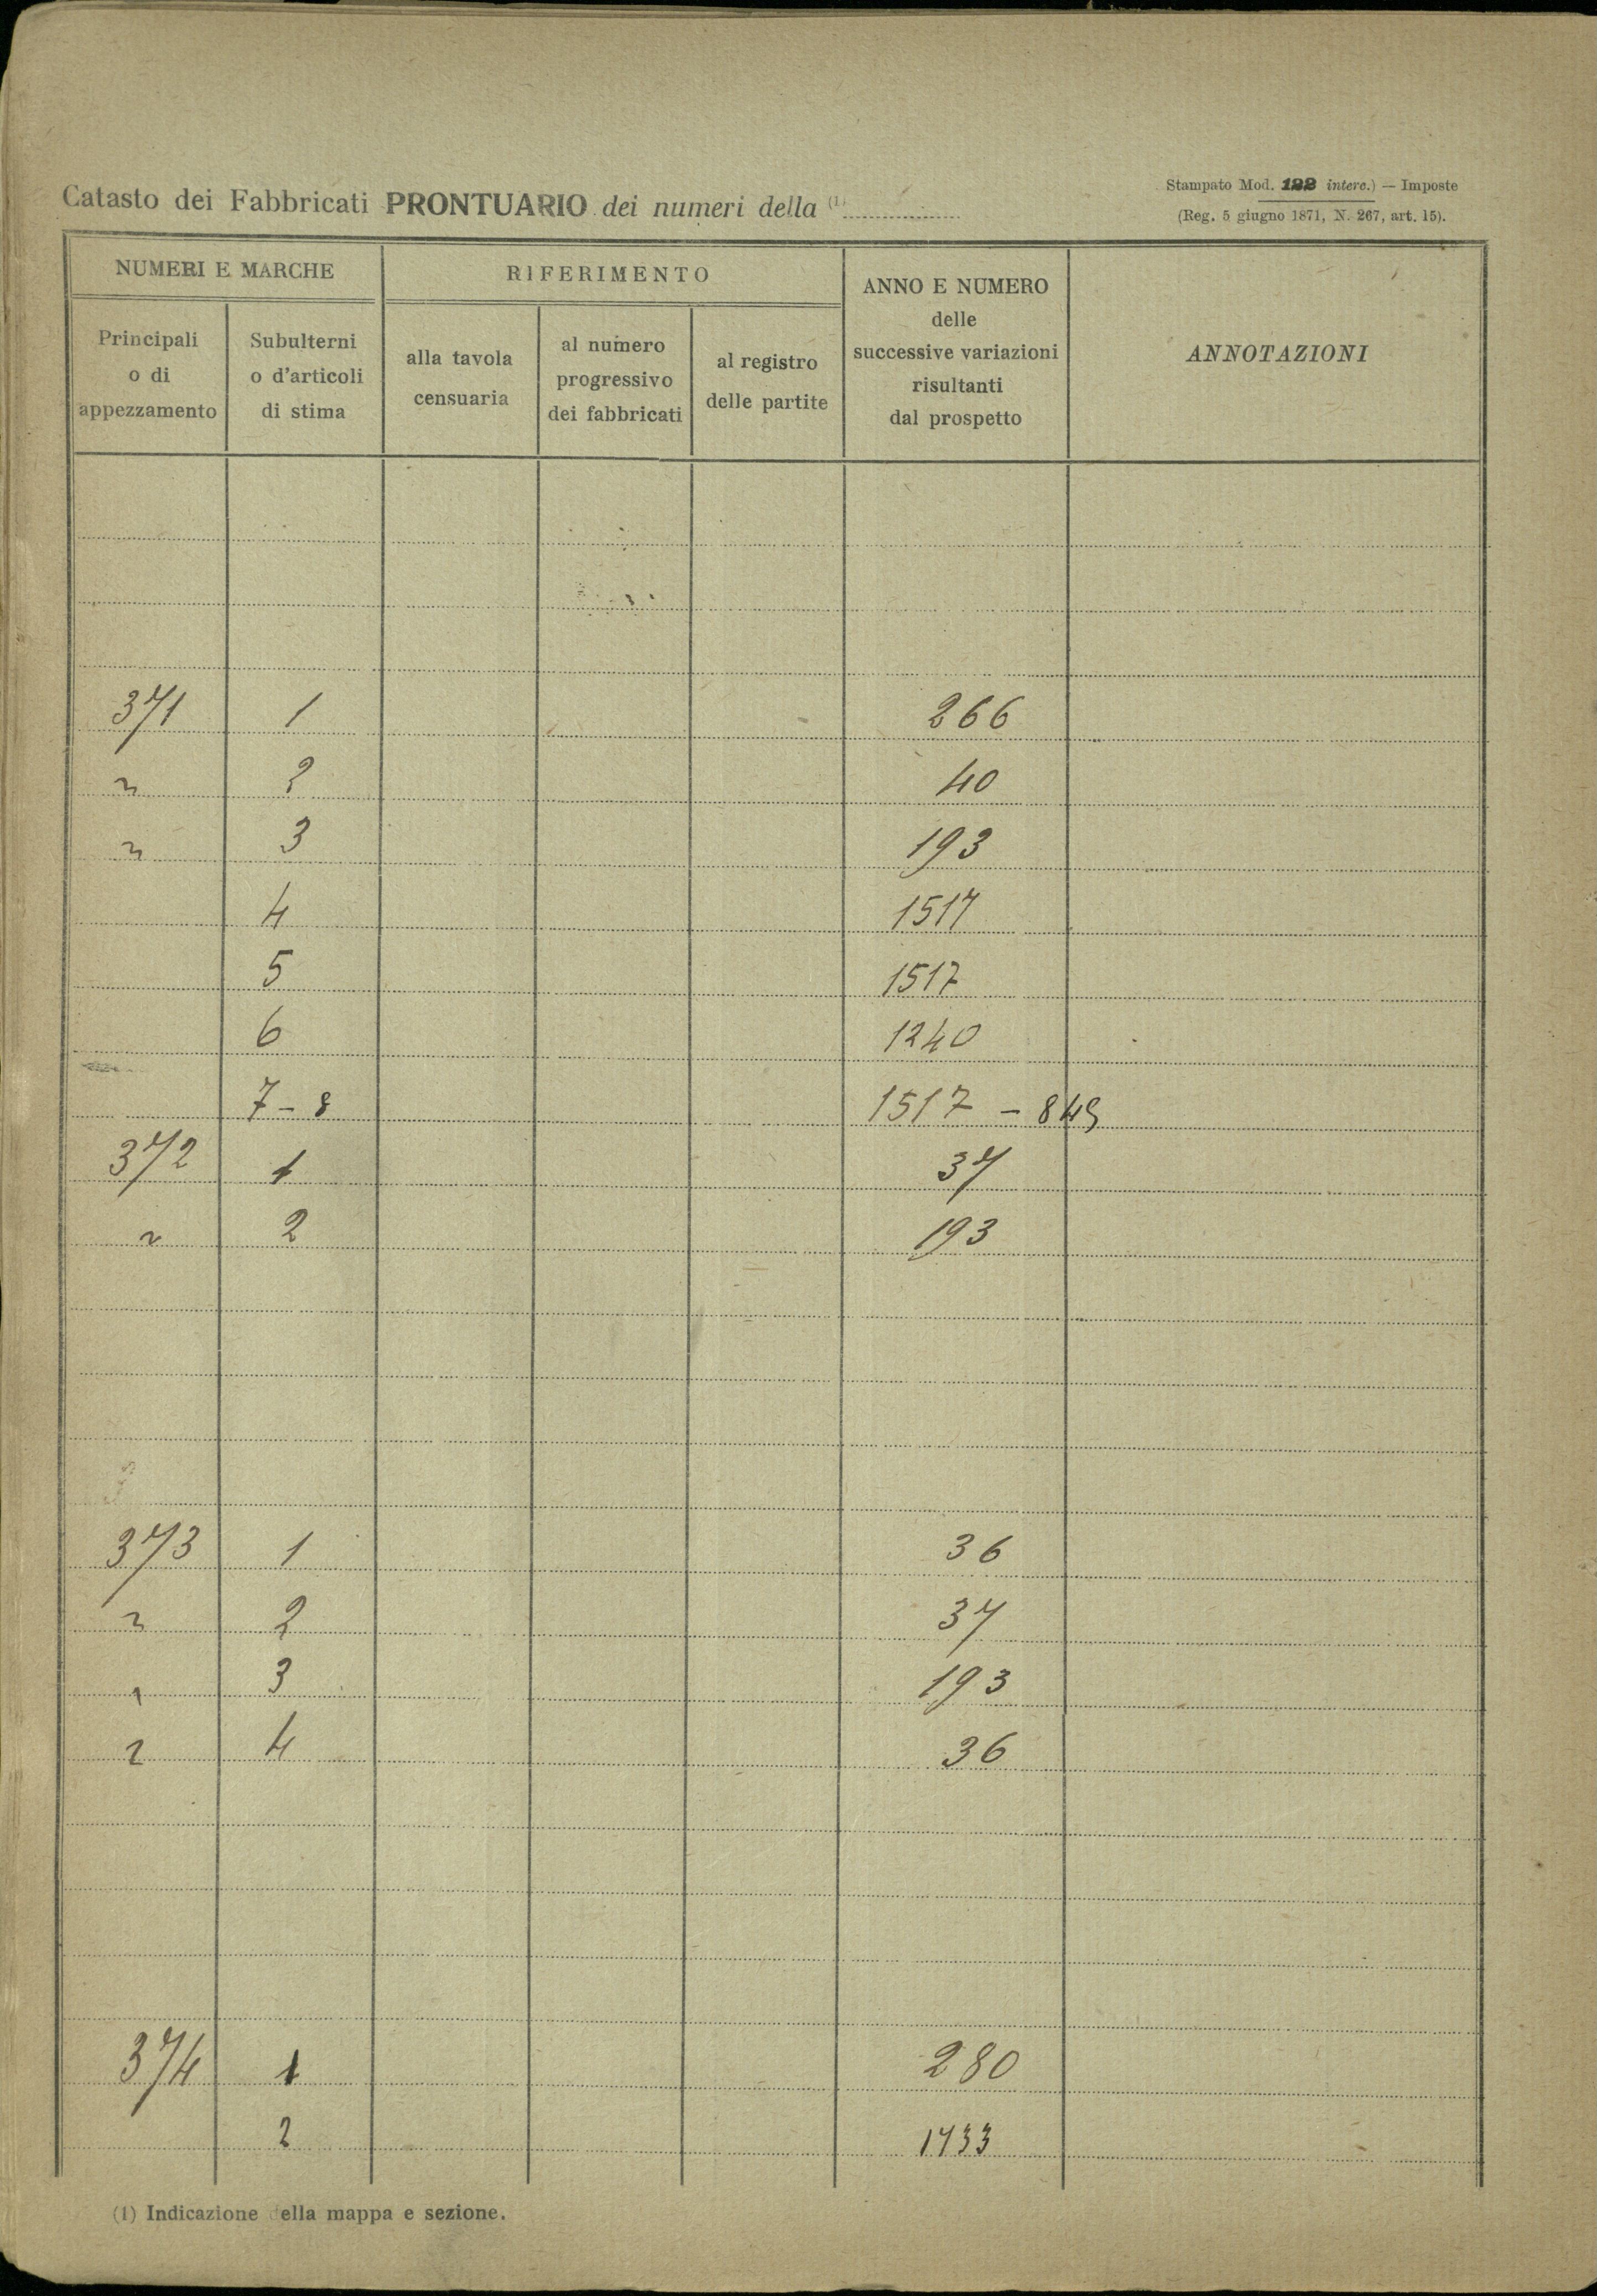 Catasto dei Fabbricati PRONTUARIO dei numeri della (1)
Stampato Mod. 122 interc.) — Imposte
(Reg. 5 giugno 1871, N. 267, art. 15).
NUMERI E MARCHE
RIFERIMENTO
ANNO E NUMERO
delle
successive variazioni
risultanti
dal prospetto
ANNOTAZIONI
Principali
o di
appezzamento
Subulterni
o d'articoli
di stima
alla tavola
censuaria
al numero
progressivo
dei fabbricati
al registro
delle partite
371 1 266
" 2 40
" 3 193
4 1517
5 1517
6 1240
7 - 8 1517 - 849
372 1 37
" 2 193
373 1 36
" 2 37
" 3 193
" 4 36
374 1 280
2 1733
(1) Indicazione della mappa e sezione.